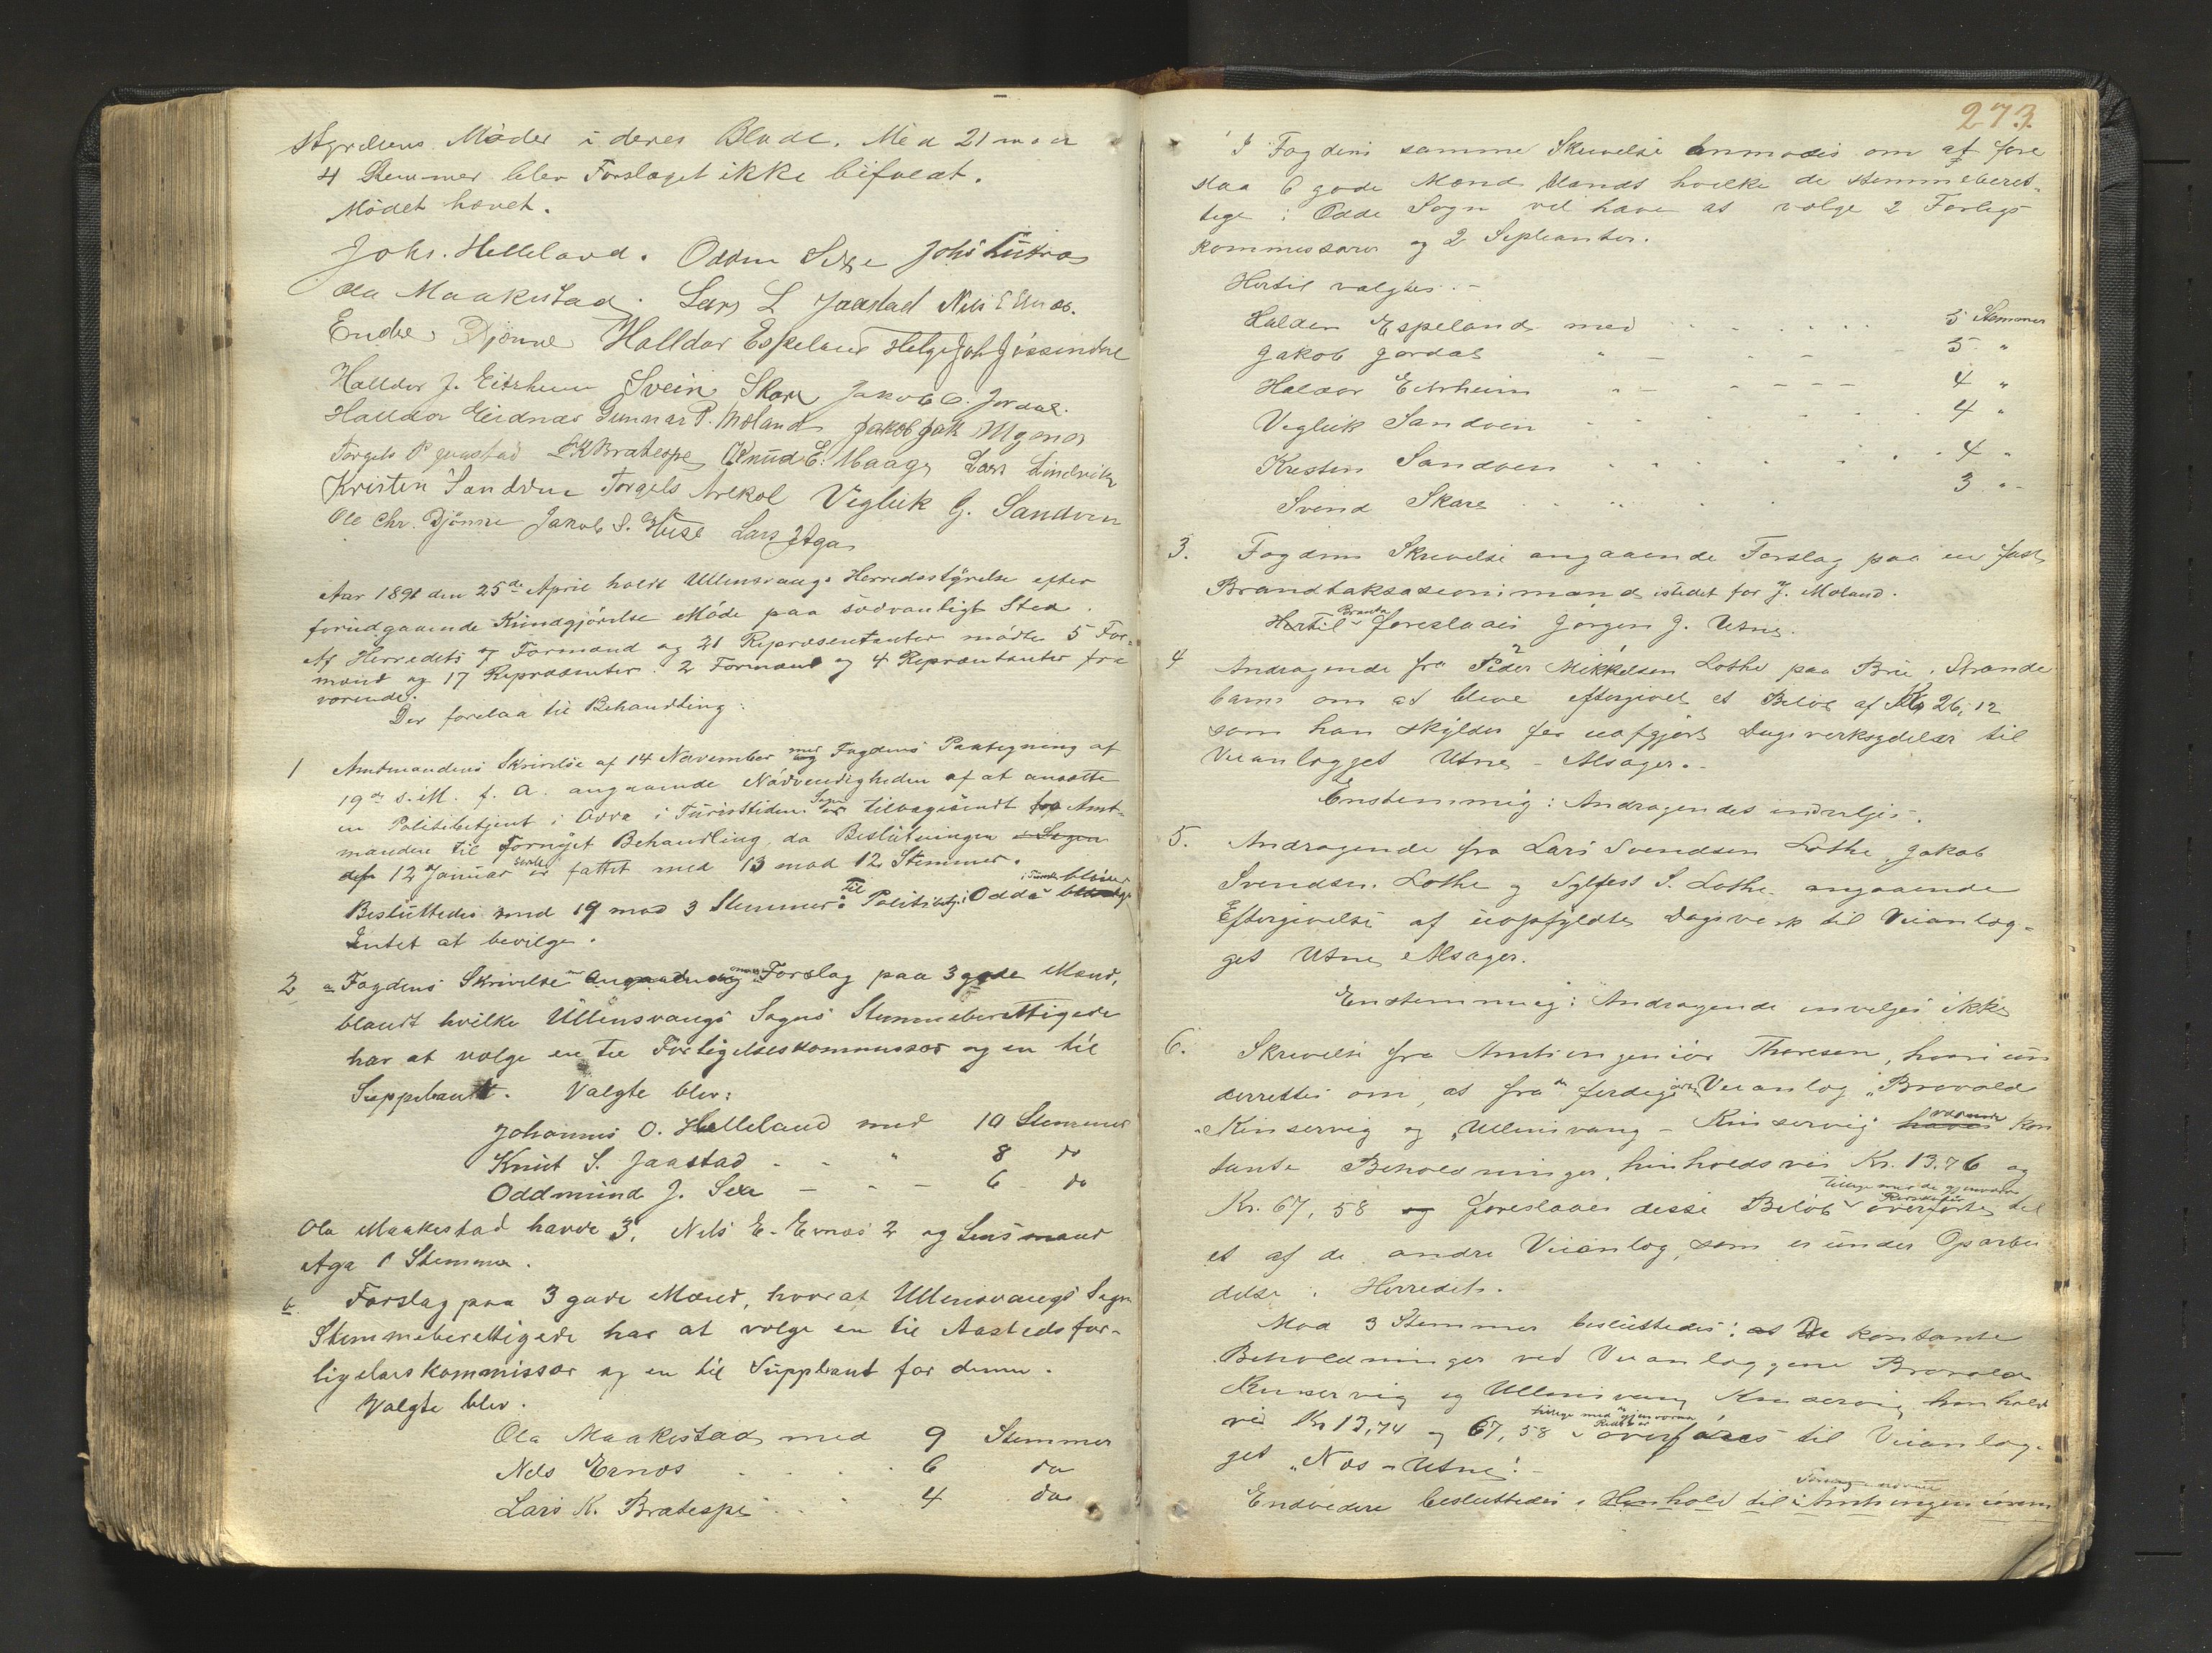 styrelsens Møder i deres Blade. Med 21 mod
4 Stemmer blev Forslaget ikke bifaldt.
Mødet hævet.
Johs. Helleland. Oddm Sexe Johs Lutro
Ola Maakestad. Lars L Jaastad Nils E Ernæs.
Endre Djønne Halldor Espeland Helge Joh Jøssendal
Halldor J. Eitrheim Svein Skare Jakob O. Jordal.
Halldor Eidnæs Gunnar P. Moland Jakob Jak Mygnos
Torgels P Jaastad LK Bratespe Knud E. Maage Lars Lindvik
Kristen Sandven Torgels Arekol Vigleik G. Sandven
Ole Chr. Djønne Jakob S. Huse Lars J Aga
Aar 1891 den 25de April holdt Ullensvangs Herredsstyrelse efter
forudgaaende Kundgjørelse Møde paa sædvanligt Sted.
Af Herredets 7 Formænd og 21 Repræsentanter mødte 5 For-
mænd og 17 Repræsenter. 2 Formænd og 4 Repræntanter fra
værende.
Der forelaa til Behandling:
1 Amtmandens Skrivelse af 14 November med Fogdens Paategning af
19de s. M. f. A. angaaende Nødvendigheden af at ansætte
en Politibetjent i Odda i Turisttiden. Sagen er tilbagesendt fra Amt-
manden til fornyet Behandling, da Beslutningen i Sagen
den 12 Januar er fattet med 13 mod 12 Stemmer.
Besluttedes med 19 mod 3 Stemmer: Til Politibetj. i Odda i Turisttiden bliver
Intet at bevilge.
2 a Fogdens Skrivelse angaaende Forslag paa 3 gode Mænd,
blandt hvilke Ullensvangs Sogns Stemmeberettigede
har at vælge en til Forligelseskommissær og en til
Suppleant. Valgte blev:
Johannes O. Helleland med 10 Stemmer
Knut S. Jaastad - - " 8 do
Oddmund J. Sexe - - - 6 - do
Ola Maakestad havde 3, Nels E. Ernæs 2 og Lensmand
Aga 1 Stemme.
b. Forslag paa 3 gode Mænd, hvoraf Ullensvangs Sogn
Stemmeberettigede har at vælge en til Aastedsfor-
ligelseskommissær og en til Suppleant for denne.
Valgte blev.
Ola Maakestad med 9 Stemmer
Nels Ernæs . . . . 6 do
Lars K. Bratespe . . . 4 do
273.
I Fogdens samme Skrivelse anmodes om at fore
slaa 6 gode Mænd blandt hvilke de stemmeberet-
tige i Odde Sogn vil have at vælge 2 Forligs
kommissærer og 2 Supleanter.
Hertil valgtes. -
Haldor Espeland med . . . . . . 5 Stemmer
Jakob Jordal " - - - - 5 "
Haldor Eitrheim " - - - - - 4 "
Vigleik Sandven . . . . . 4 "
Kristen Sandven . . . . . . 4 "
Svend Skare . . . . 3 "
3. Fogdens Skrivelse angaaende Forslag paa en fast
Brandtaksasionsmand istedet for J. Moland.
Hertil foreslaaes Jørgen J. Utne.
4 Andragende fra Peder Mikkelsen Lothe paa Brie, Strande
barm om at blive eftergivet et Beløb af Kr 26,12
som han skylder for uafgjort Dagsverksydelse til
Veianlægget Utne - Alsager. -
Enstemmig: Andragendet indvilges.
5. Andragende fra Lars Svendsen Lothe, Jakob
Svendsen Lothe og Sylfest S. Lothe angaaende
Eftergivelse af uopfyldte Dagsverk til Veianlæg-
get Utne Alsager.
Enstemmig: Andragende invilges ikke
6. Skrivelse fra Amtsingeniør Thoresen, hvori un
derrettes om, at fra de ferdigjorte Veianlæg "Brovold
"Kinservig og "Ullensvang - Kinservig" haves kon
tante Beholdninger, henholdsvis Kr. 13.76 og
Kr. 67,58 og foreslaaes disse Beløb tillige med de gjenværende Redskaber overførte til
et af de andre Veianlæg, som er under Oparbei
delse i Herredet.
Mod 3 Stemmer besluttedes: at De kontante
Beholdninger ved Veianlæggene Brovold
Kinservig og Ullensvang Kinservig henholds
vis Kr 13,74 og 67,58 tillige med de gjenværende Redskaber overføres til Veianlæg-
get "Næs - Utne". -
Endvidere besluttedes i Henhold til Amtsingeniørens